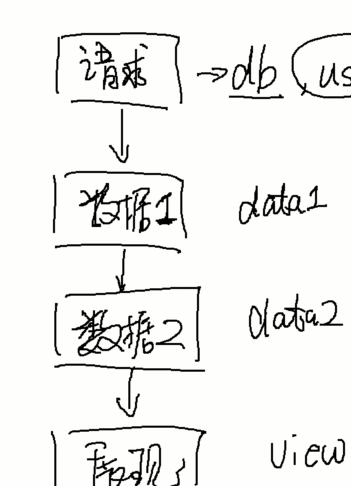 请求 → db us
数据1 data1
数据2 data2
展现 view